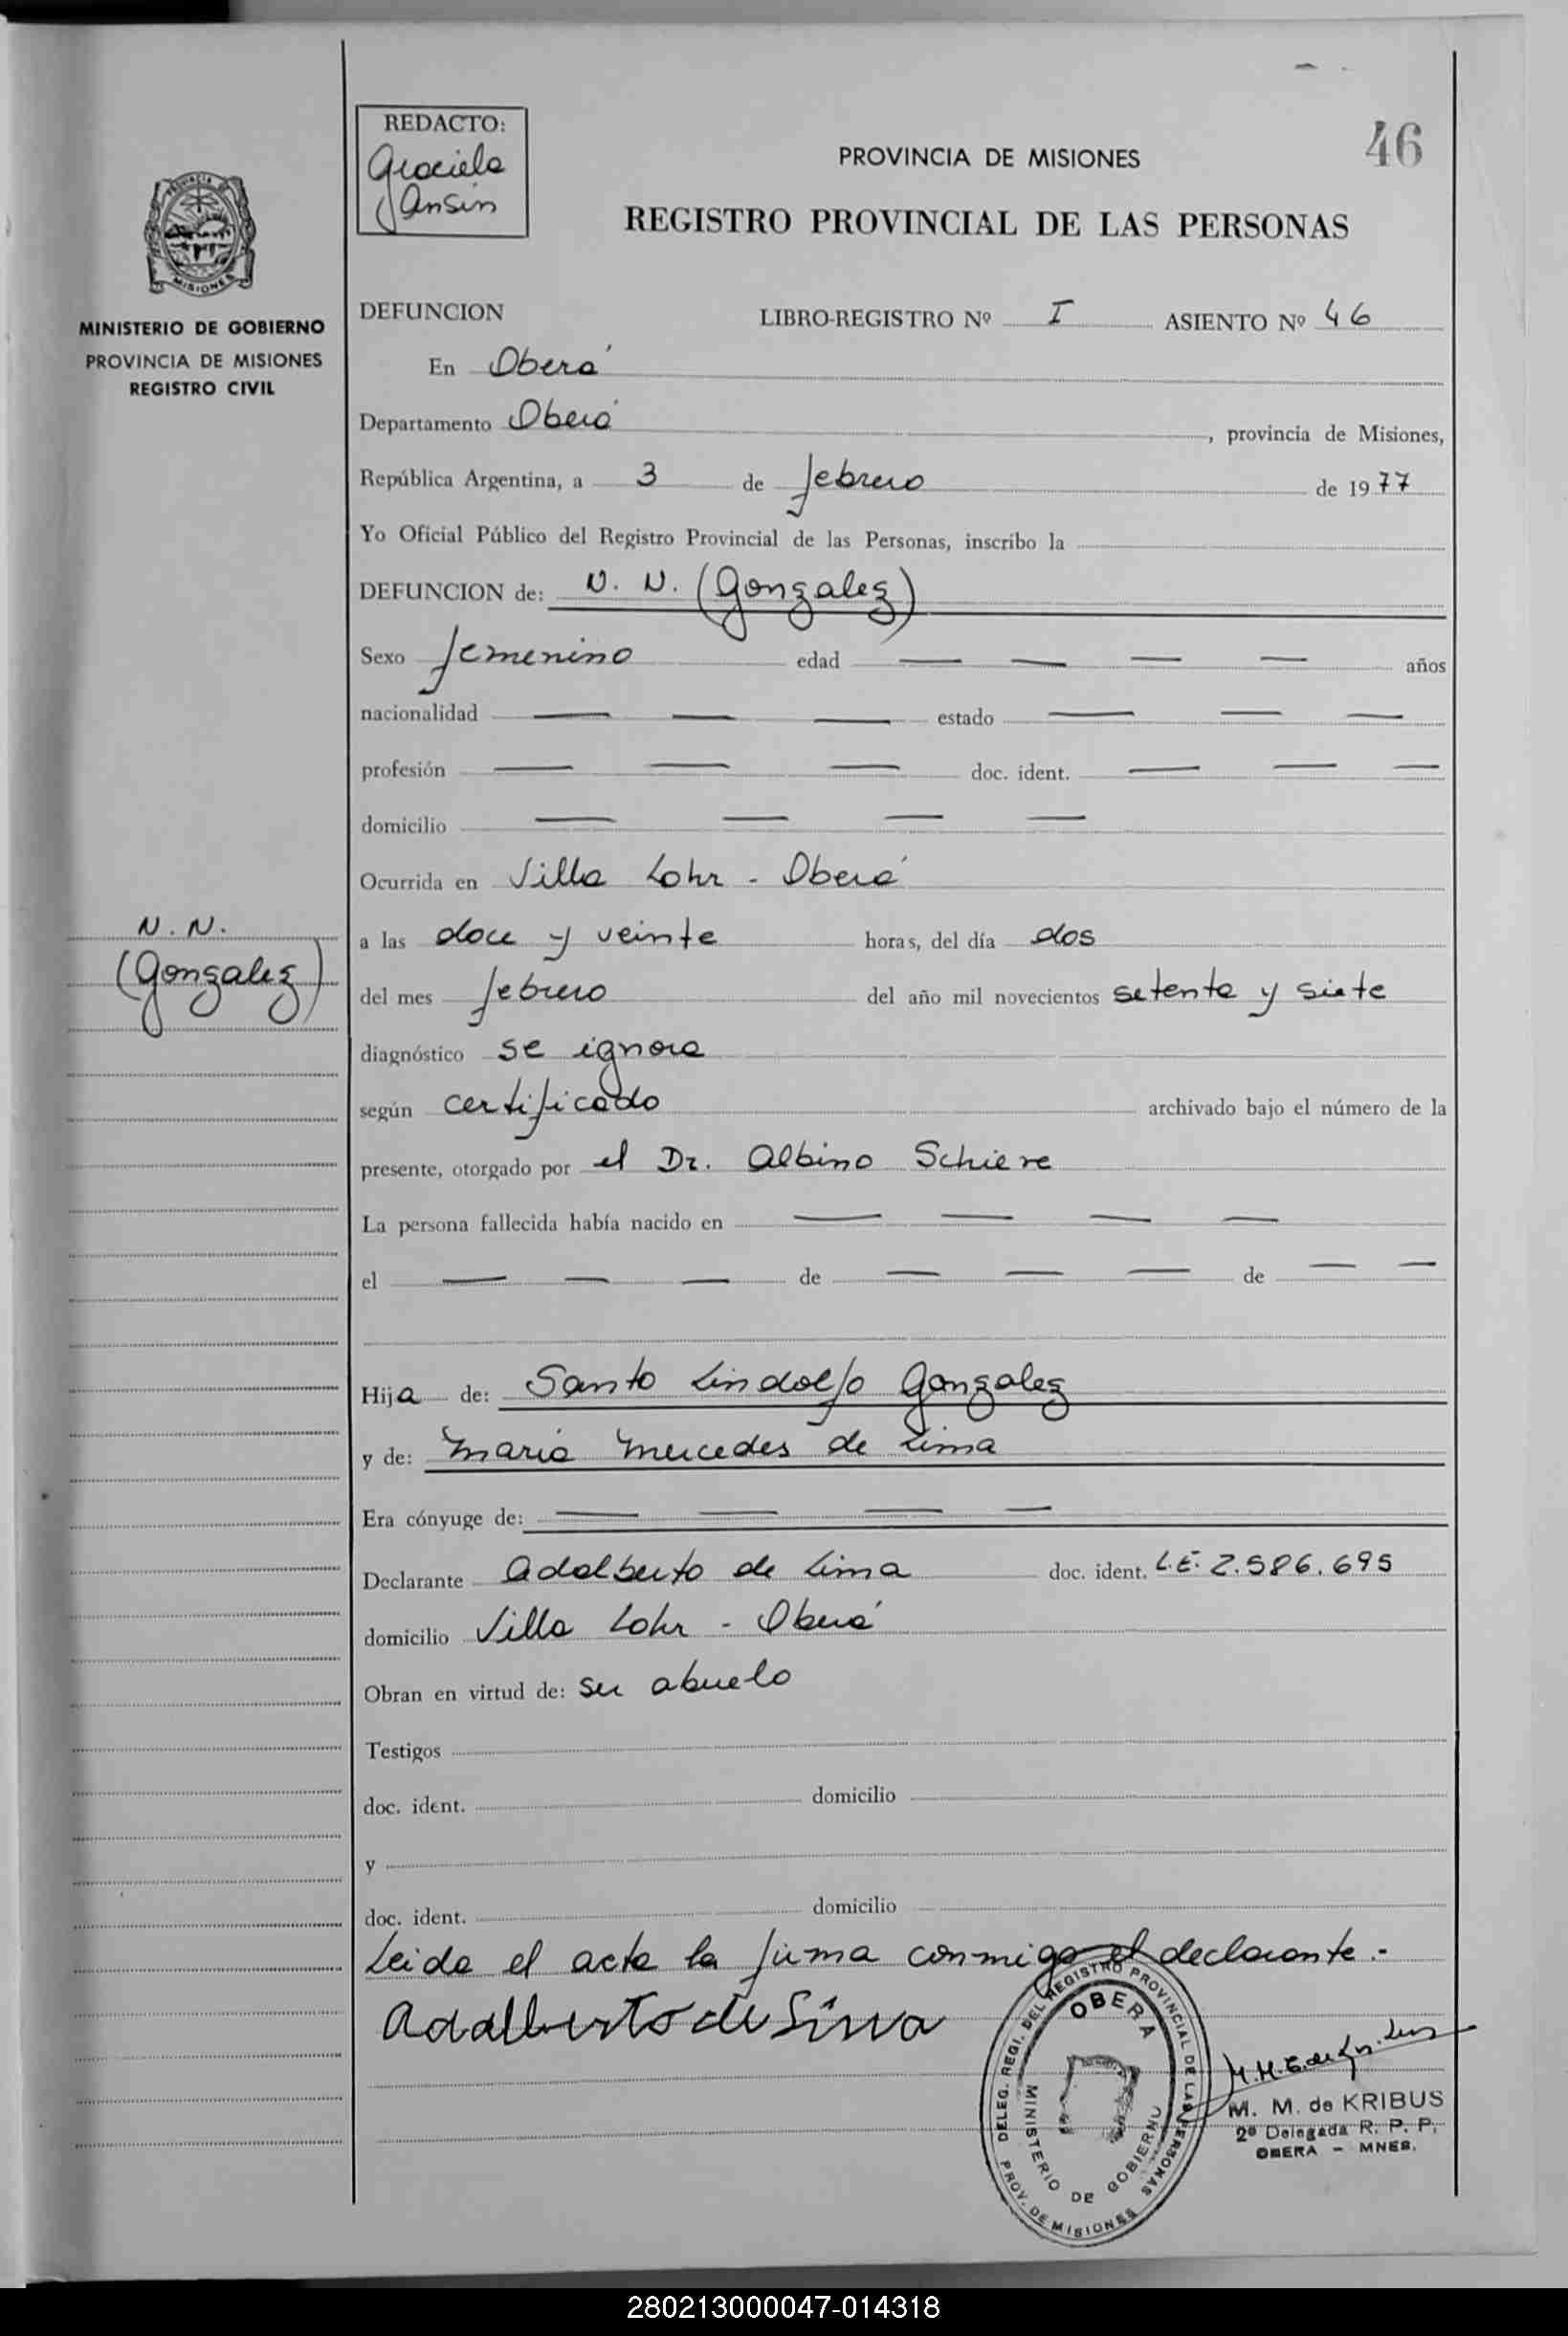 46
REDACTO:
Graciela
Jansin
PROVINCIA DE MISIONES
REGISTRO PROVINCIAL DE LAS PERSONAS
MISIONES
MINISTERIO DE GOBIERNO
PROVINCIA DE MISIONES
REGISTRO CIVIL
DEFUNCION LIBRO-REGISTRO Nº I ASIENTO Nº 46
En Oberá
Departamento Oberá, provincia de Misiones,
República Argentina, a 3 de febrero de 1977
Yo Oficial Público del Registro Provincial de las Personas, inscribo la
DEFUNCION de: N. N. (Gonzalez)
Sexo femenino edad — — — — años
nacionalidad — — — estado — — —
profesión — — — doc. ident. — — —
domicilio — — — —
Ocurrida en Villa Lohr - Oberá
N. N.
(Gonzalez)
a las doce y veinte horas, del día dos
del mes febrero del año mil novecientos setenta y siete
diagnóstico se ignora
según certificado archivado bajo el número de la
presente, otorgado por el Dr. Albino Schiere
La persona fallecida había nacido en — — — —
el — — — de — — — de — —
Hija de: Santo Lindolfo Gonzalez
y de: Maria Mercedes de Lima
Era cónyuge de: — — — —
Declarante Adalberto de Lima doc. ident. L.E. 2.586.695
domicilio Villa Lohr - Oberá
Obran en virtud de: ser abuelo
Testigos
doc. ident. domicilio
y
doc. ident. domicilio
Leida el acta la firma conmigo el declarante.-
Adalberto de Lima
DELEG. REGI. DEL REGISTRO PROVINCIAL DE LAS PERSONAS
OBERA
MINISTERIO DE GOBIERNO
PROV. DE MISIONES
M. M. de KRIBUS
2ª Delegada R. P. P.
OBERA - MNES.
280213000047-014318